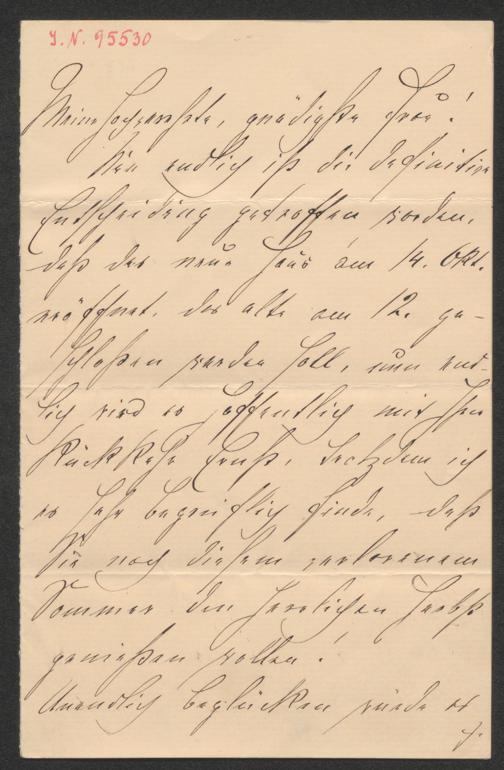 J. N. 95530
Meine hochverehrte, gnädigste Frau!
Nun endlich ist die definitive
Entscheidung getroffen worden,
daß das neue Haus am 14. Okt.
eröffnet, das alte am 12. ge-
schloßen werden soll, nun end-
lich wird es hoffentlich mit Ihrer
Rückkehr Ernst, trotzdem ich
es sehr begreiflich finde, daß
Sie nach diesem verlorenem
Sommer den herrlichen Herbst
genießen wollen!
Unendlich beglücken würde es